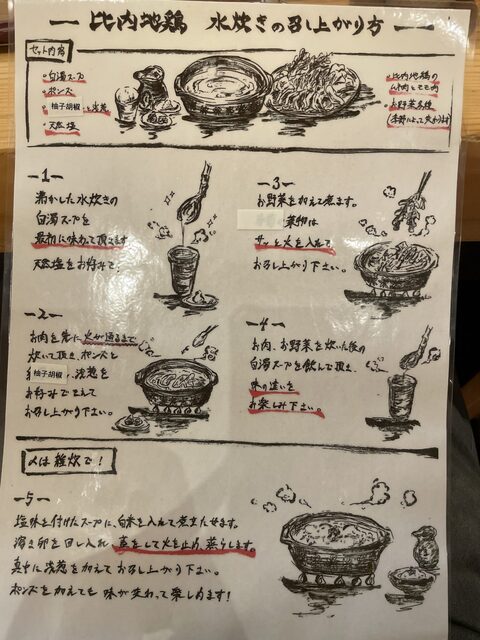 比内地鶏 水炊きの召し上がり方
セット内容
・白湯スープ
・ポンズ
・柚子胡椒と浅葱
・天然塩
・比内地鶏の
ムネ肉とモモ肉
・お野菜各種
(季節によって変わります)
-1-
沸かした水炊きの
白湯スープを
最初に味わって頂きます
天然塩をお好みで。
-2-
お肉を先に火が通るまで
炊いて頂き、ポンズと
柚子胡椒、浅葱を
お好みで
お召し上がり下さい。
-3-
お野菜を加えて煮ます。
葉物は
サッと火を入れて
お召し上がり下さい。
-4-
お肉、お野菜を炊いた後の
白湯スープを飲んで頂き、
味の違いを
お楽しみ下さい。
〆は雑炊で!
-5-
塩味を付けたスープに、白米を入れて煮立たせます。
溶き卵を回し入れ、蓋をして火を止め、蒸らします。
最后に浅葱を加えてお召し上がり下さい。
ポンズを加えても味が変わって楽しめます!